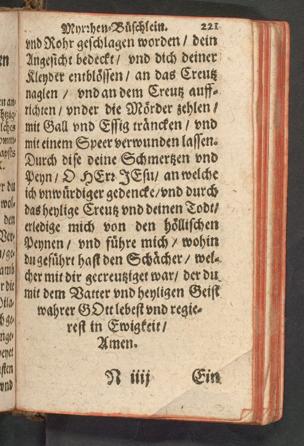 Myrrhen-Büschlein. 221
vnd Rohr geschlagen worden / dein
Angesicht bedeckt / vnd dich deiner
Kleyder entblössen / an das Creutz
naglen / vnd an dem Creutz auff-
richten / vnder die Mörder zehlen /
mit Gall vnd Essig träncken / vnd
mit einem Speer verwunden lassen.
Durch dise deine Schmertzen vnd
Peyn / O HErr JEsu / an welche
ich vnwürdiger gedencke / vnd durch
das heylige Creutz vnd deinen Todt /
erledige mich von den höllischen
Peynen / vnd führe mich / wohin
du geführt hast den Schächer / wel-
cher mit dir gecreutziget war / der du
mit dem Vatter vnd heyligen Geist
wahrer GOtt lebest vnd regie-
rest in Ewigkeit /
Amen.
N iiij Ein